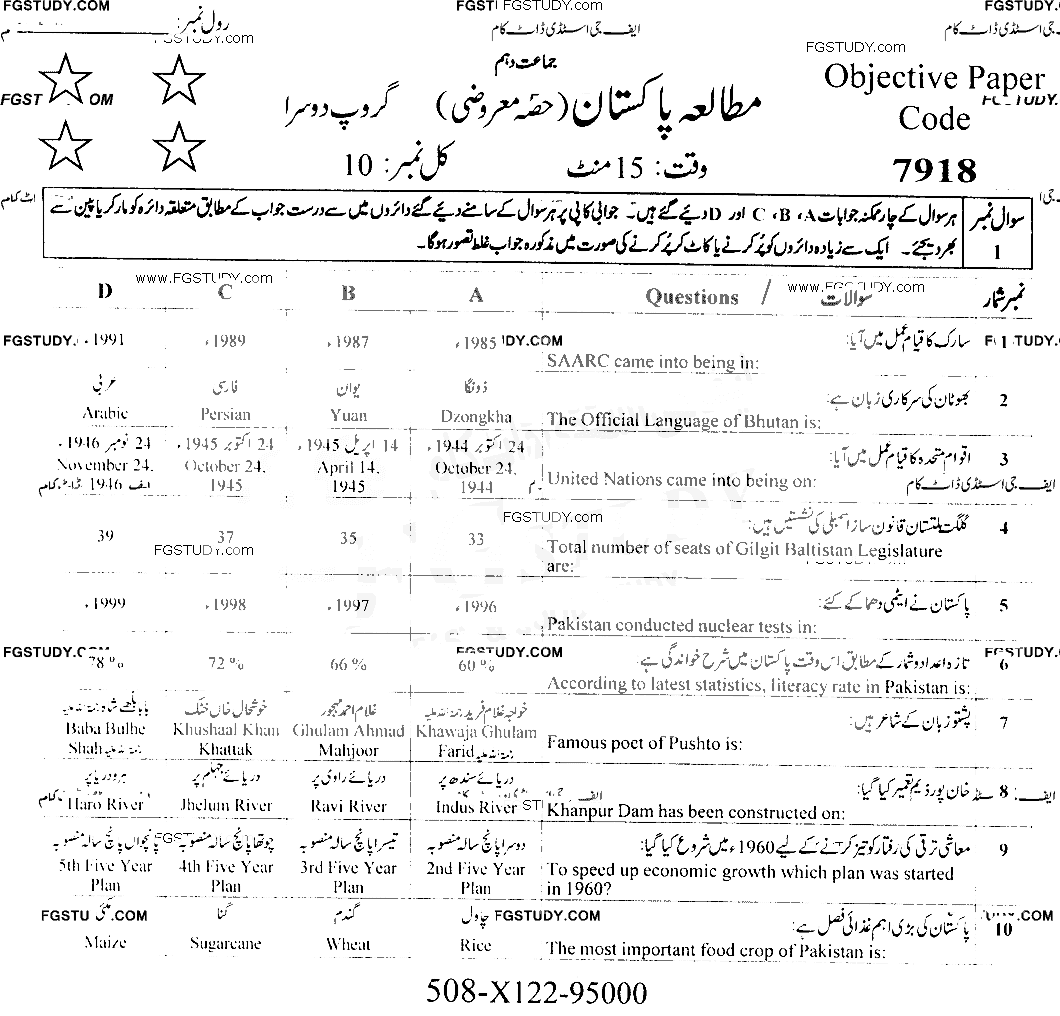 FGSTUDY.COM FGSTUDY.com FGSTUDY.
رول نمبر: ایف جی اسٹڈی ڈاٹ کام
FGSTUDY.com
جماعت دہم
Objective Paper
Code
7918
مطالعہ پاکستان (حصہ معروضی) گروپ دوسرا
وقت: 15 منٹ کل نمبر: 10
سوال نمبر 1
ہر سوال کے چار ممکنہ جوابات A ، B ، C اور D دیئے گئے ہیں۔ جوابی کاپی پر ہر سوال کے سامنے دیئے گئے دائروں میں سے درست جواب کے مطابق متعلقہ دائرہ کو مارکر یا پین سے
بھر دیجئے۔ ایک سے زیادہ دائروں کو پُر کرنے یا کاٹ کر پُر کرنے کی صورت میں مذکورہ جواب غلط تصور ہوگا۔
www.FGSTUDY.com
D C B A Questions / سوالات نمبر شمار
1991ء 1989ء 1987ء 1985ء سارک کا قیام عمل میں آیا: 1
SAARC came into being in:
عربی فارسی یوان ڈونگا بھوٹان کی سرکاری زبان ہے: 2
Arabic Persian Yuan Dzongkha The Official Language of Bhutan is:
24 نومبر 1946ء 24 اکتوبر 1945ء 14 اپریل 1945ء 24 اکتوبر 1944ء اقوام متحدہ کا قیام عمل میں آیا: 3
November 24, October 24, April 14, October 24,
1946 1945 1945 1944 United Nations came into being on:
ایف جی اسٹڈی ڈاٹ کام
FGSTUDY.com
39 37 35 33 گلگت بلتستان قانون ساز اسمبلی کی نشستیں ہیں: 4
Total number of seats of Gilgit Baltistan Legislature
are:
1999ء 1998ء 1997ء 1996ء پاکستان نے ایٹمی دھماکے کئے: 5
Pakistan conducted nuclear tests in:
78 % 72 % 66 % 60 % تازہ اعداد و شمار کے مطابق اس وقت پاکستان میں شرح خواندگی ہے: 6
According to latest statistics, literacy rate in Pakistan is:
بابا بلھے شاہ خوشحال خاں خٹک غلام احمد مہجور خواجہ غلام فرید پشتو زبان کے شاعر ہیں: 7
Baba Bulhe Khushaal Khan Ghulam Ahmad Khawaja Ghulam
Shah Khattak Mahjoor Farid Famous poet of Pushto is:
ہرو دریا پر دریائے جہلم پر دریائے راوی پر دریائے سندھ پر خان پور ڈیم تعمیر کیا گیا: 8
Haro River Jhelum River Ravi River Indus River Khanpur Dam has been constructed on:
پانچواں پانچ سالہ منصوبہ چوتھا پانچ سالہ منصوبہ تیسرا پانچ سالہ منصوبہ دوسرا پانچ سالہ منصوبہ معاشی ترقی کی رفتار کو تیز کرنے کے لیے 1960ء میں شروع کیا گیا: 9
5th Five Year 4th Five Year 3rd Five Year 2nd Five Year To speed up economic growth which plan was started
Plan Plan Plan Plan in 1960?
مکئی گنا گندم چاول FGSTUDY.COM پاکستان کی بڑی اہم غذائی فصل ہے: 10
Maize Sugarcane Wheat Rice The most important food crop of Pakistan is:
508-X122-95000